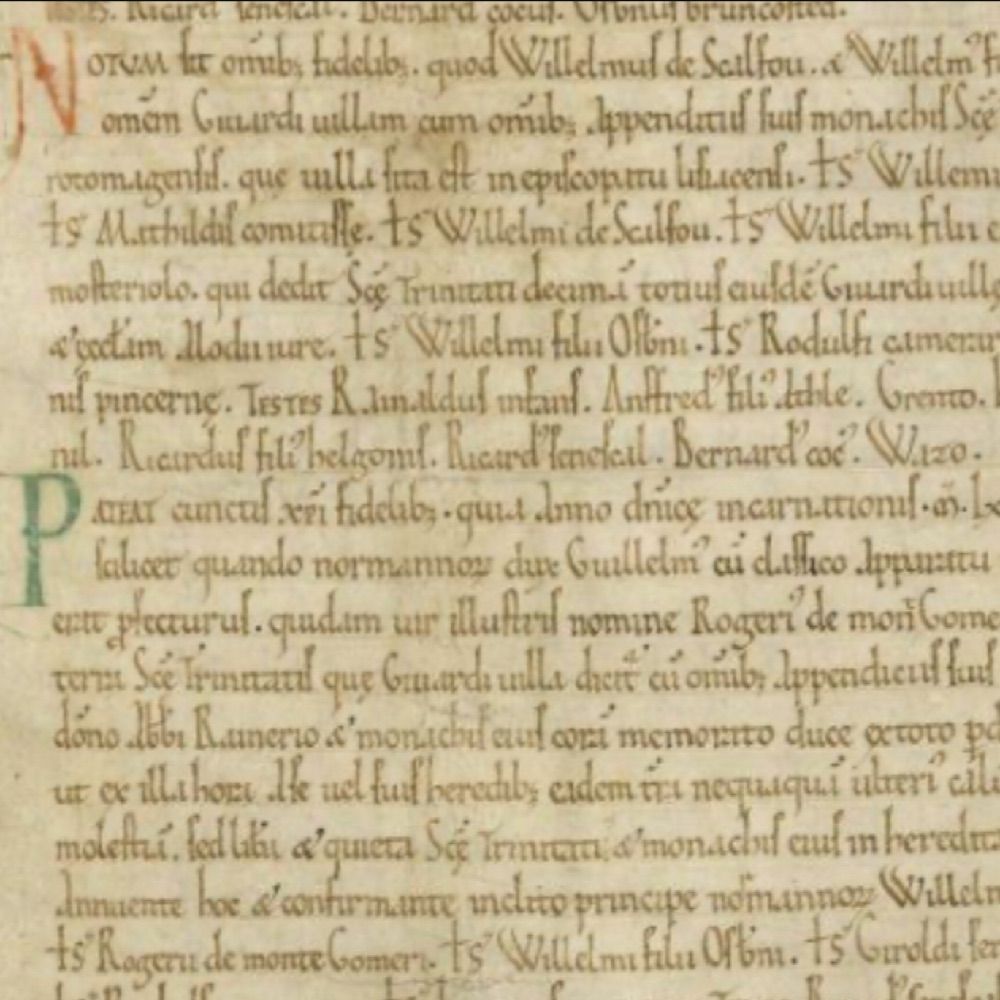 Ricard senescal. Bernard cocus. Osbnus bruncosted.
NOTUM sit omib; fidelib;. quod Willelmus de Scalfou. & Willelm᾿
omem Guiardi uillam cum omib; Appenditiis suis monachis Scę
rotomagensis. quę uilla sita est in episcopatu lisiacensi. †S᾿ Willemi
†S᾿ Mathildis comitissę. †S᾿ Willelmi de Scalfou. †S᾿ Willelmi filii
mosteriolo. qui dedit Scę Trinitati decimā totius eiusdē Guiardi uillę
& ęcclam Alodii iure. †S᾿ Willelmi filii Osbni. †S᾿ Rodulfi camerar
nis pincernę. TESTES Rainaldus infans. Ansfred᾿ fili᾿ Athle. Grento.
nil. Ricardus fili᾿ helgonis. Ricard᾿ senescal. Bernard᾿ coc᾿. Wazo.
PATEAT cunctis xpi fidelib;. quia Anno dnicę incarnationis. m̄. lx
scilicet quando normannoꝝ dux Guillelm᾿ cū classico Apparatu
erat ꝓfecturus. quidam uir illustris nomine Rogeri᾿ de mon̄ Gome
terra Scę Trinitatis quę Guiardi uilla dicit᾿ cū omib; Appendiciis suis
dōno Abbi Rainerio & monachis eius corā memorato duce
ut ex illa hora Ipse uel suis heredib; eadem tra nequaquā ulteri᾿
molestiā. sed libā & quieta Scę Trinitati & monachis eius in heredita
Annuente hoc & confirmante inclito principe normannoꝝ Willelm
†S᾿ Rogerii de monte Gomeri. †S᾿ Willelmi filii Osbni. †S᾿ Giroldi sen